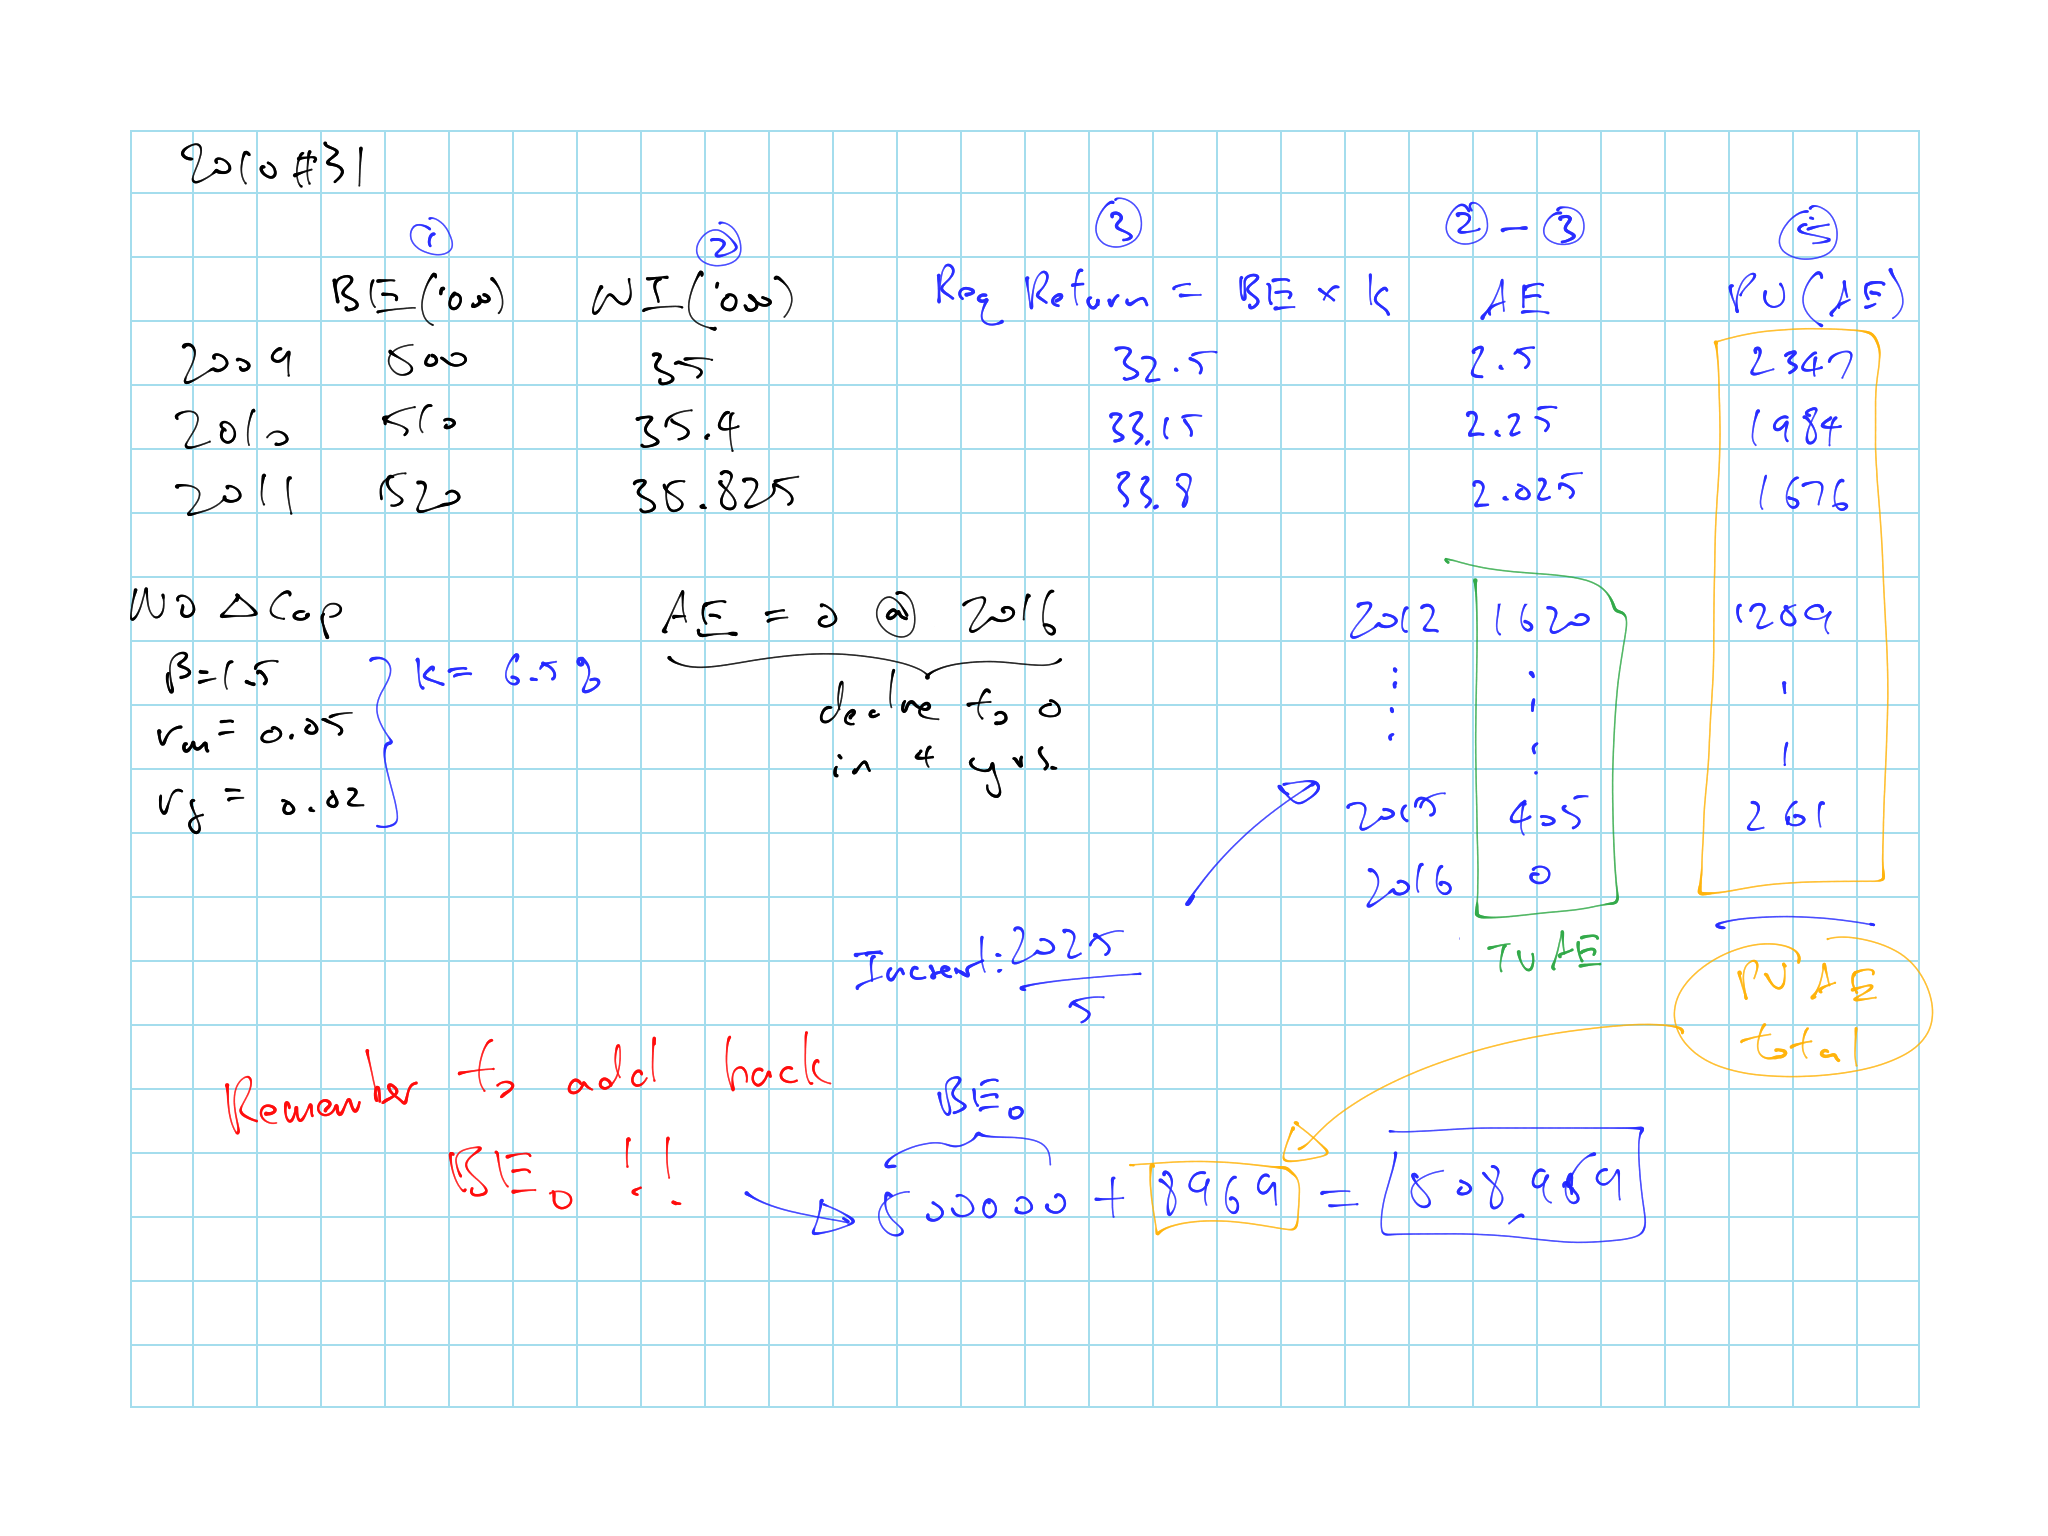 2010 #31
① ② ③ ② - ③ ⑤
BE ('000) NI ('000) Req Return = BE × k AE PV (AE)
2009 500 35 32.5 2.5 2347
2010 510 35.4 33.15 2.25 1984
2011 520 35.825 33.8 2.025 1676
NO Δ Cap AE = 0 @ 2016 2012 1620 1259
β = 1.5 k = 6.5%
decline to 0
rm = 0.05
in 4 yrs.
rf = 0.02 2015 405 261
2016 0
Increment: 2025
5
TV AE
PV AE
total
Remember to add back
BE₀ !!
BE₀
500000 + 8969 = 508,969